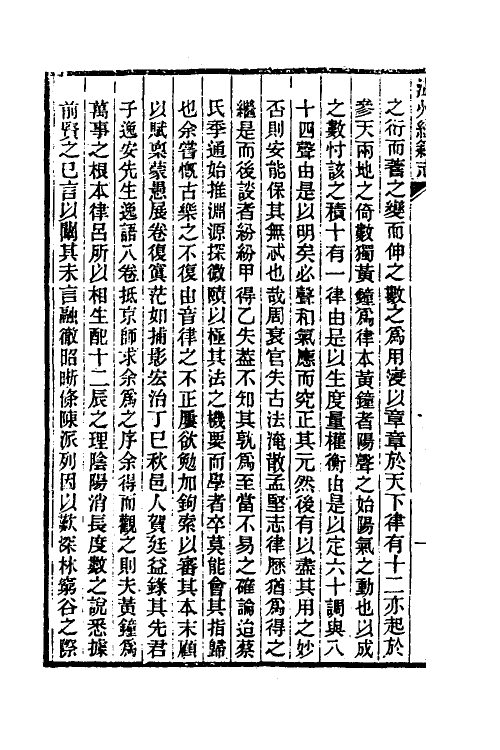 之衍而蓍之變而伸之數之爲用寖以章章於天下律有十二亦起於
參天兩地之倚數獨黃鐘爲律本黃鐘者陽聲之始陽氣之動也以成
之數忖該之積十有一律由是以生度量權衡由是以定六十調與八
十四聲由是以明矣必聲和氣應而究正其元然後有以盡其用之妙
否則安能保其無忒也哉周衰官失古法淹散孟堅志律厯猶爲得之
繼是而後談者紛紛甲得乙失蓋不知其孰爲至當不易之確論迨蔡
氏季通始推淵源探微賾以極其法之機要而學者卒莫能會其指歸
也余嘗慨古樂之不復由音律之不正屢欲勉加鉤索以審其本末顧
以賦稟蒙愚展卷復寘茫如捕影宏治丁巳秋邑人賀廷益錄其先君
子逸安先生逸語八卷抵京師求余爲之序余得而觀之則夫黃鐘爲
萬事之根本律呂所以相生配十二辰之理陰陽消長度數之說悉據
前賢之已言以闡其未言融徹昭晰條陳派列因以歎深林窮谷之際